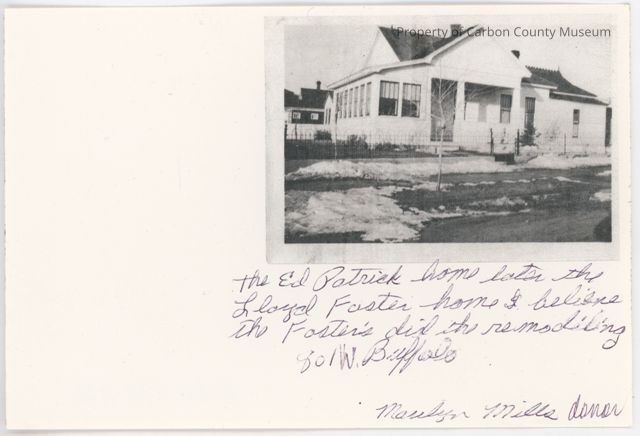 Property of Carbon County Museum
the Ed Patrick home later the
Lloyd Foster home I believe
the Foster's did the remodiling
801 W. Buffalo
Marilyn Mills donor